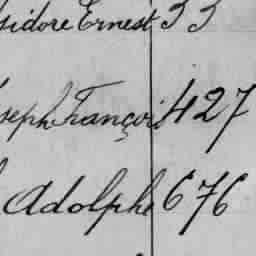 sidore Ernest 33
seph François 427
Adolphe 676